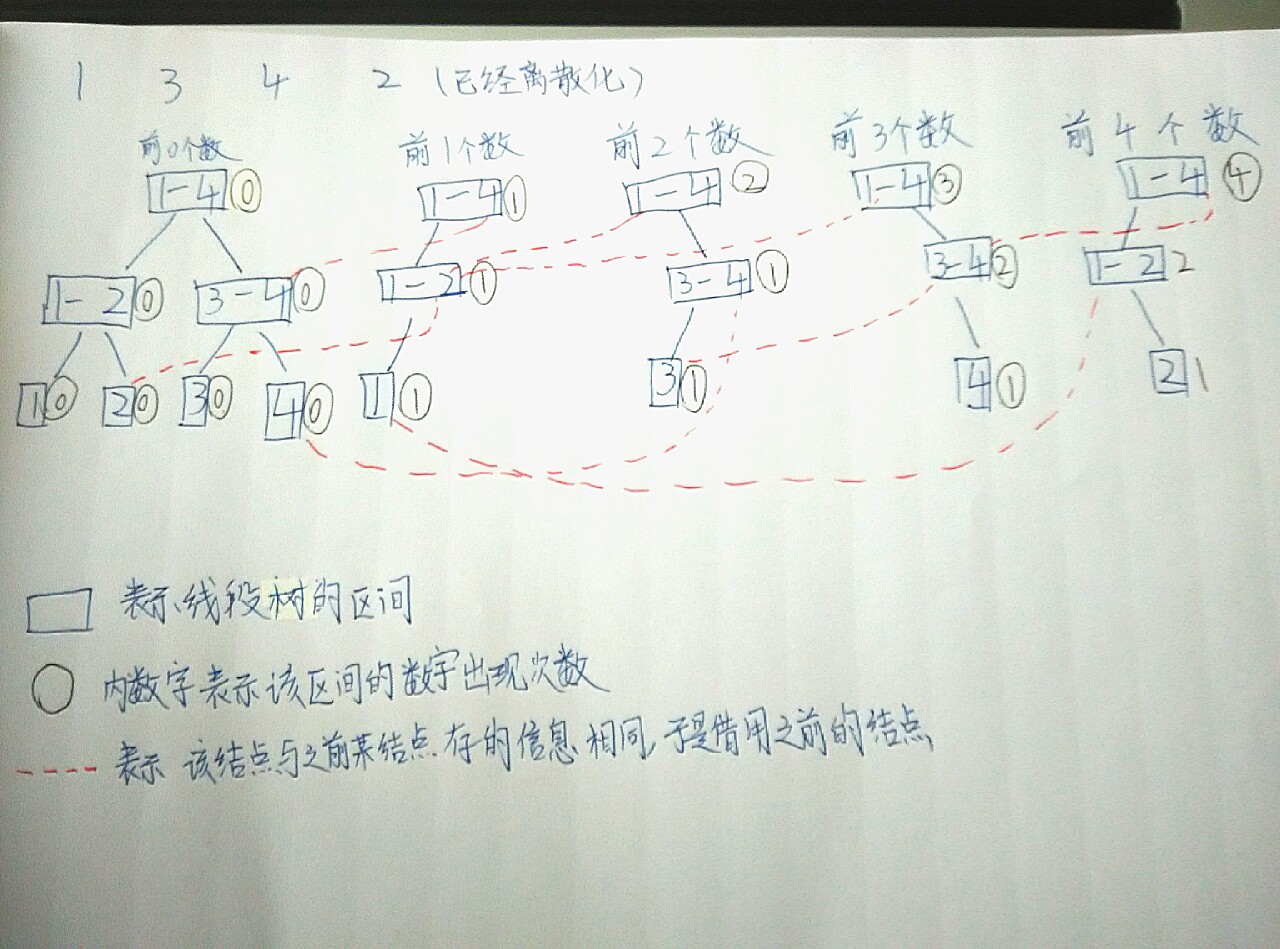 1 3 4 2 (已经离散化)
前0个数 前1个数 前2个数 前3个数 前4个数
1-4 0 1-4 1 1-4 2 1-4 3 1-4 4
1-2 0 3-4 0 1-2 1 3-4 1 3-4 2 1-2 2
1 0 2 0 3 0 4 0 1 1 3 1 4 1 2 1
表示线段树的区间
内数字表示该区间的数字出现次数
表示 该结点与之前某结点存的信息相同,于是借用之前的结点